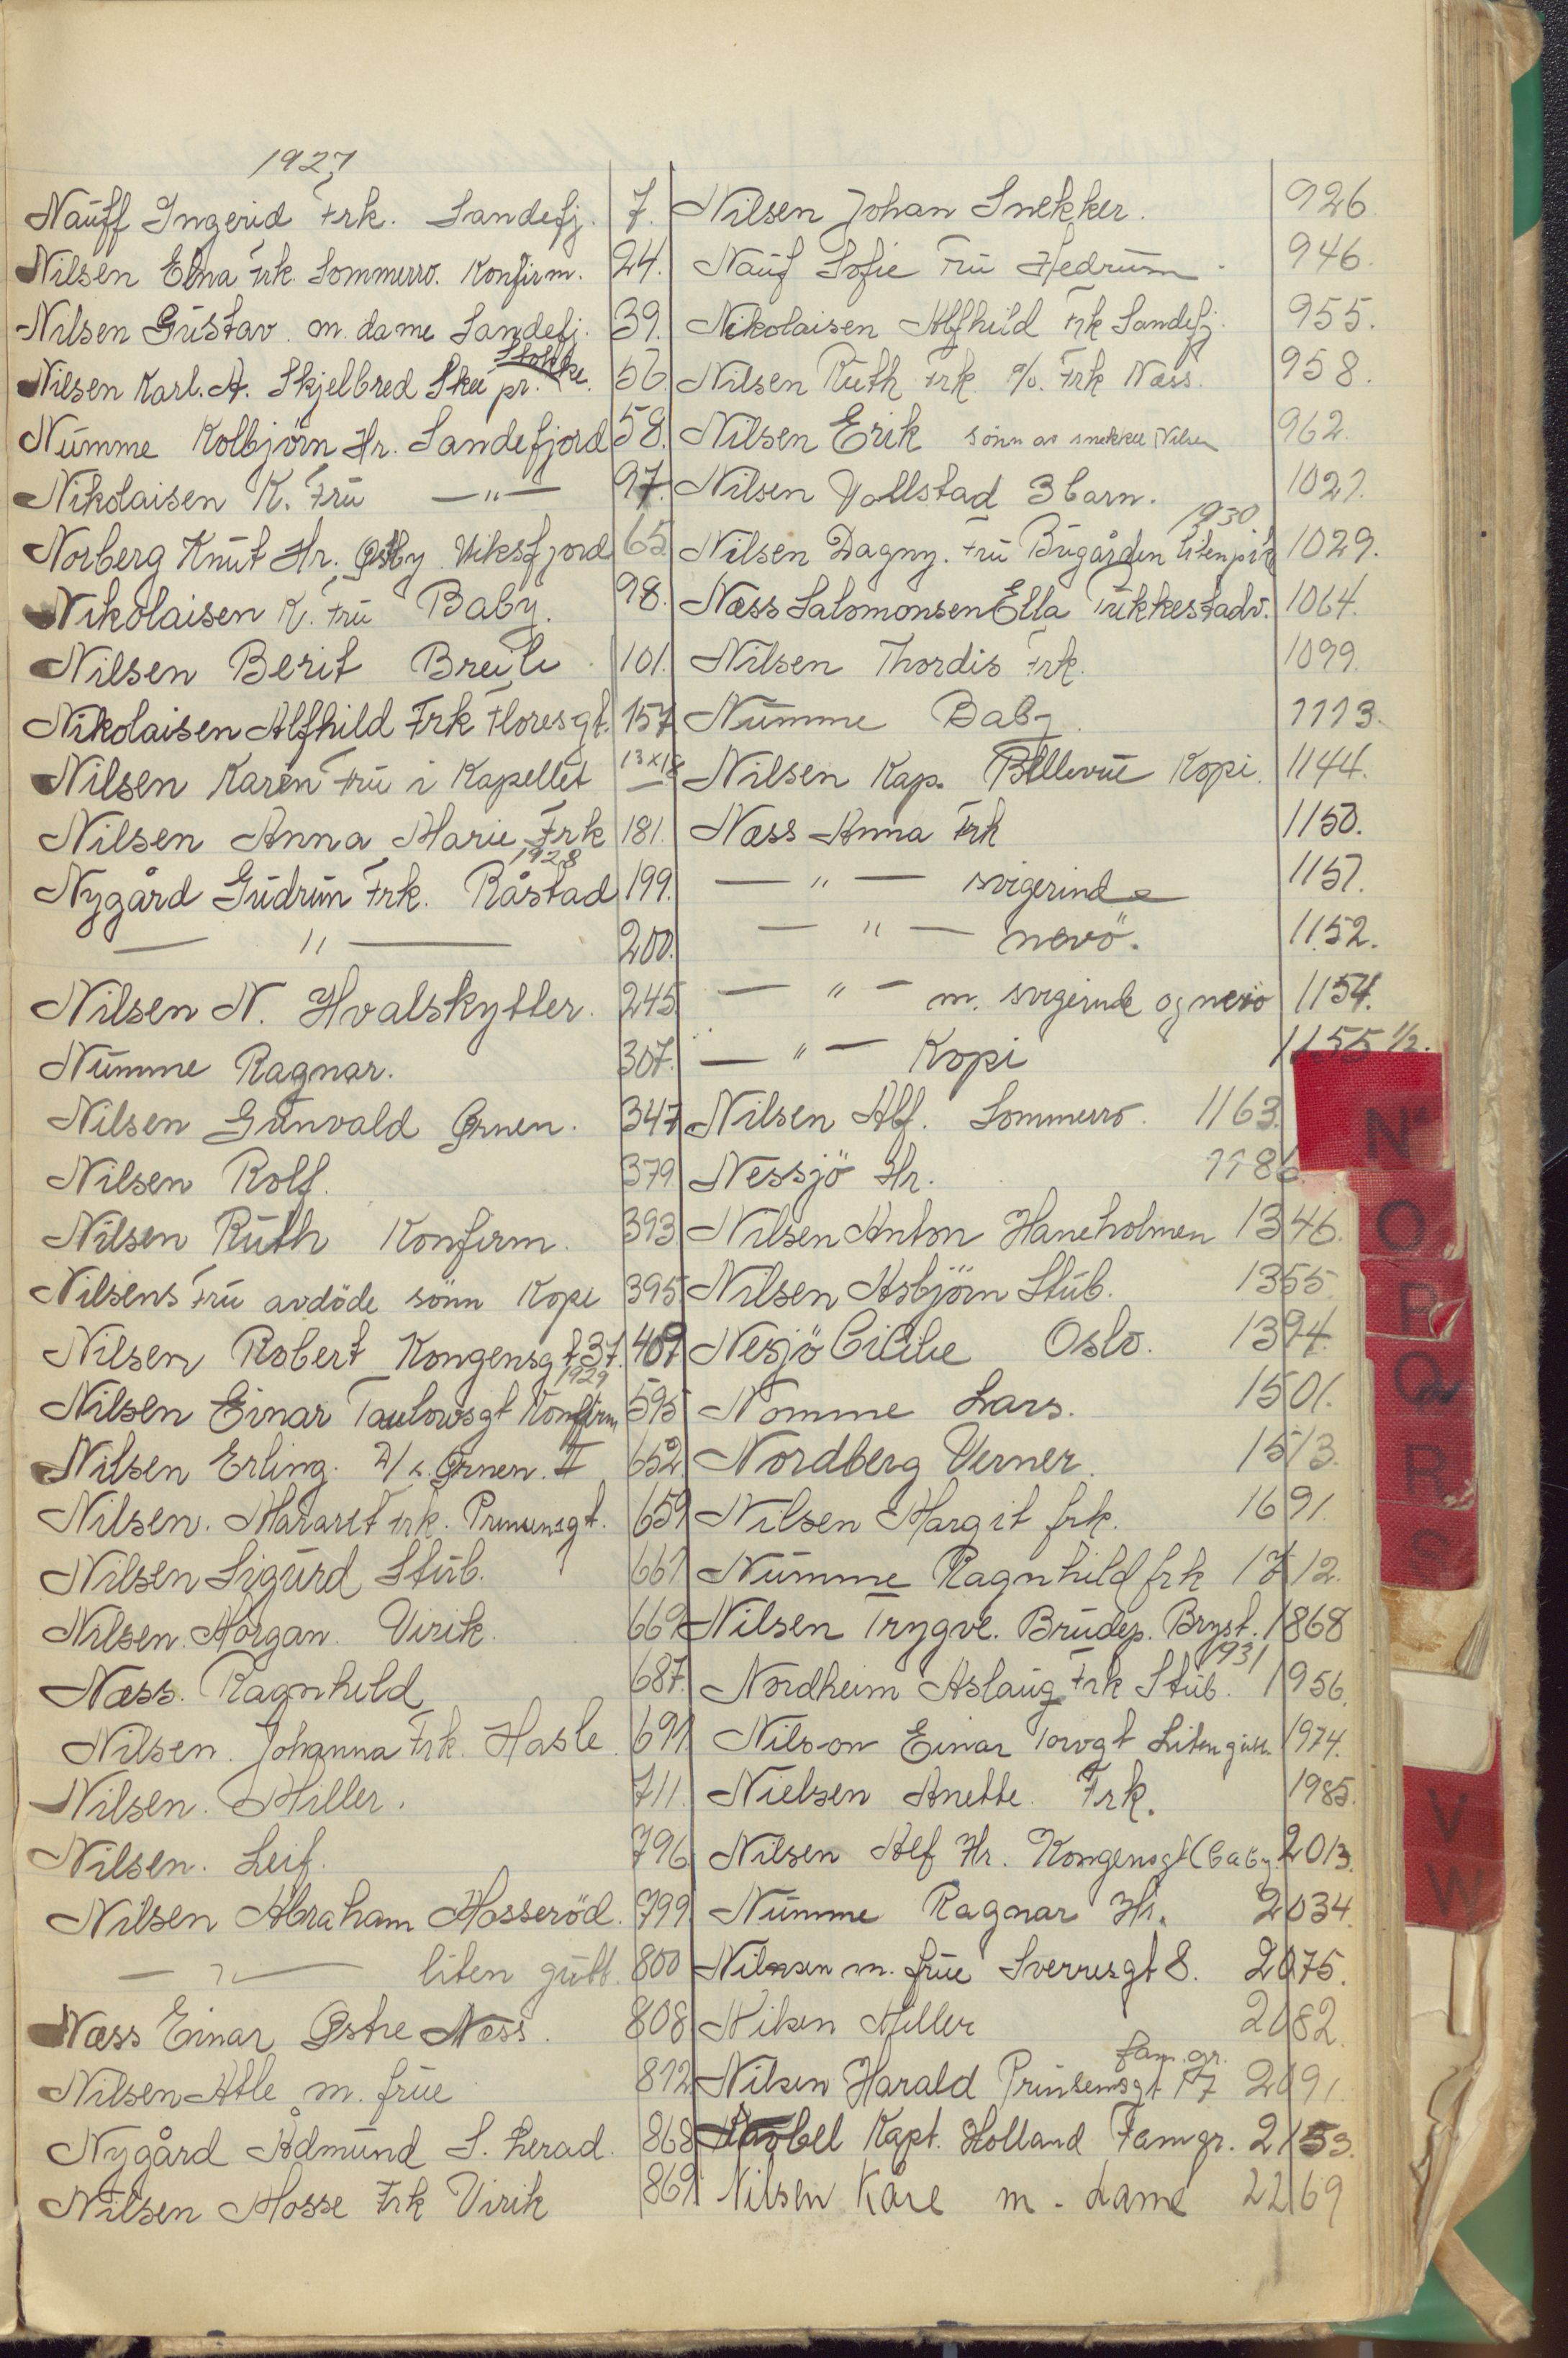 1927
Nauff Ingerid Frk. Sandefj. 7.
Nilsen Edna Frk. Sommerro. Konfirm. 24.
Nilsen Gustav. m. dame Sandefj. 39.
Nilsen Karl. A. Skjelbred Skee pr. Stokke. 56
Numme Kolbjörn Hr. Sandefjord 58.
Nikolaisen K. Fru —"— 97.
Norberg Knut Hr. Østby Viksfjord 65
Nikolaisen K. Fru Baby. 98.
Nilsen Berit Breili. 101.
Nikolaisen Alfhild Frk Floresgt. 157
Nilsen Karen Fru i Kapellet 13x18
Nilsen Anna Marie Frk 181.
1928
Nygård Gudrun Frk. Råstad 199.
— " — 200.
Nilsen N. Hvalskytter. 245
Numme Ragnar. 307.
Nilsen Gunvald Ørnen. 347
Nilsen Rolf. 379
Nilsen Ruth Konfirm. 393
Nilsens Fru avdöde sönn Kopi 395
Nilsen Robert Kongensgt 37. 409
1929
Nilsen Einar Taulowsgt Konfirm 595
Nilsen Erling. D/s. Ørnen. II 652
Nilsen. Mararet Frk. Prinsensgt. 659
Nilsen Sigurd Stub. 661
Nilsen. Morgan. Virik. 669
Næss. Ragnhild 687.
Nilsen. Johanna Frk. Hasle. 691
Nilsen. Miller. 711.
Nilsen. Leif. 796
Nilsen Abraham Mosseröd. 799
— " — liten gutt. 800
Næss Einar Østre Næss. 808
Nilsen Atle m. frue 812
Nygård Admund S. Herad. 868
Nilsen Mosse Frk Virik 869
Nilsen Johan Snekker. 926
Nauf Sofie Fru Hedrum. 946.
Nikolaisen Alfhild Frk Sandefj. 955.
Nilsen Ruth Frk. %. Frk Næss. 958.
Nilsen Erik sönn av snekker Nilsen 962.
Nilsen Vollstad 3 barn. 1021.
1930
Nilsen Dagny. Fru Bugården liten pik 1029.
Næss Salomonsen Ella Trikkestadv. 1064.
Nilsen Thordis Frk. 1099.
Numme Baby. 1113.
Nilsen Kap. Bellevue Kopi. 1144.
Næss Anna Frk 1150.
— " — svigerinde 1151.
— " — nevö. 1152.
— " — m. svigerinde og nevö 1154.
— " — Kopi 1155 1/2.
Nilsen Alf. Sommerro. 1163.
Nessjö Hr. 1186.
Nilsen Anton Haneholmen 1346.
Nilsen Asbjörn Stub. 1355
Nesjö Cicilie Oslo. 1394.
Nomme Lars. 1501.
Nordberg Verner. 1513.
Nilsen Margit frk. 1691.
Numme Ragnhild frk 1712.
Nilsen Trygve. Brudep. Bryst. 1868
1931
Nordheim Aslaug Frk Stub. 1956.
Nilson Einar Torvgt Liten gutt. 1974.
Nielsen Anette. Frk. 1985.
Nilsen Alf Hr. Kongensgt (baby. 2013.
Numme Ragnar Hr. 2034.
Nilsen m. frue Sverresgt 8. 2075.
Nilsen Miller 2082.
fam. gr.
Nilsen Harald Prinsensgt 17 2091.
Kapt. Holland Fam gr. 2153.
Nilsen Kåre m. dame 2269
N
O
P
Q
R
S
V
W